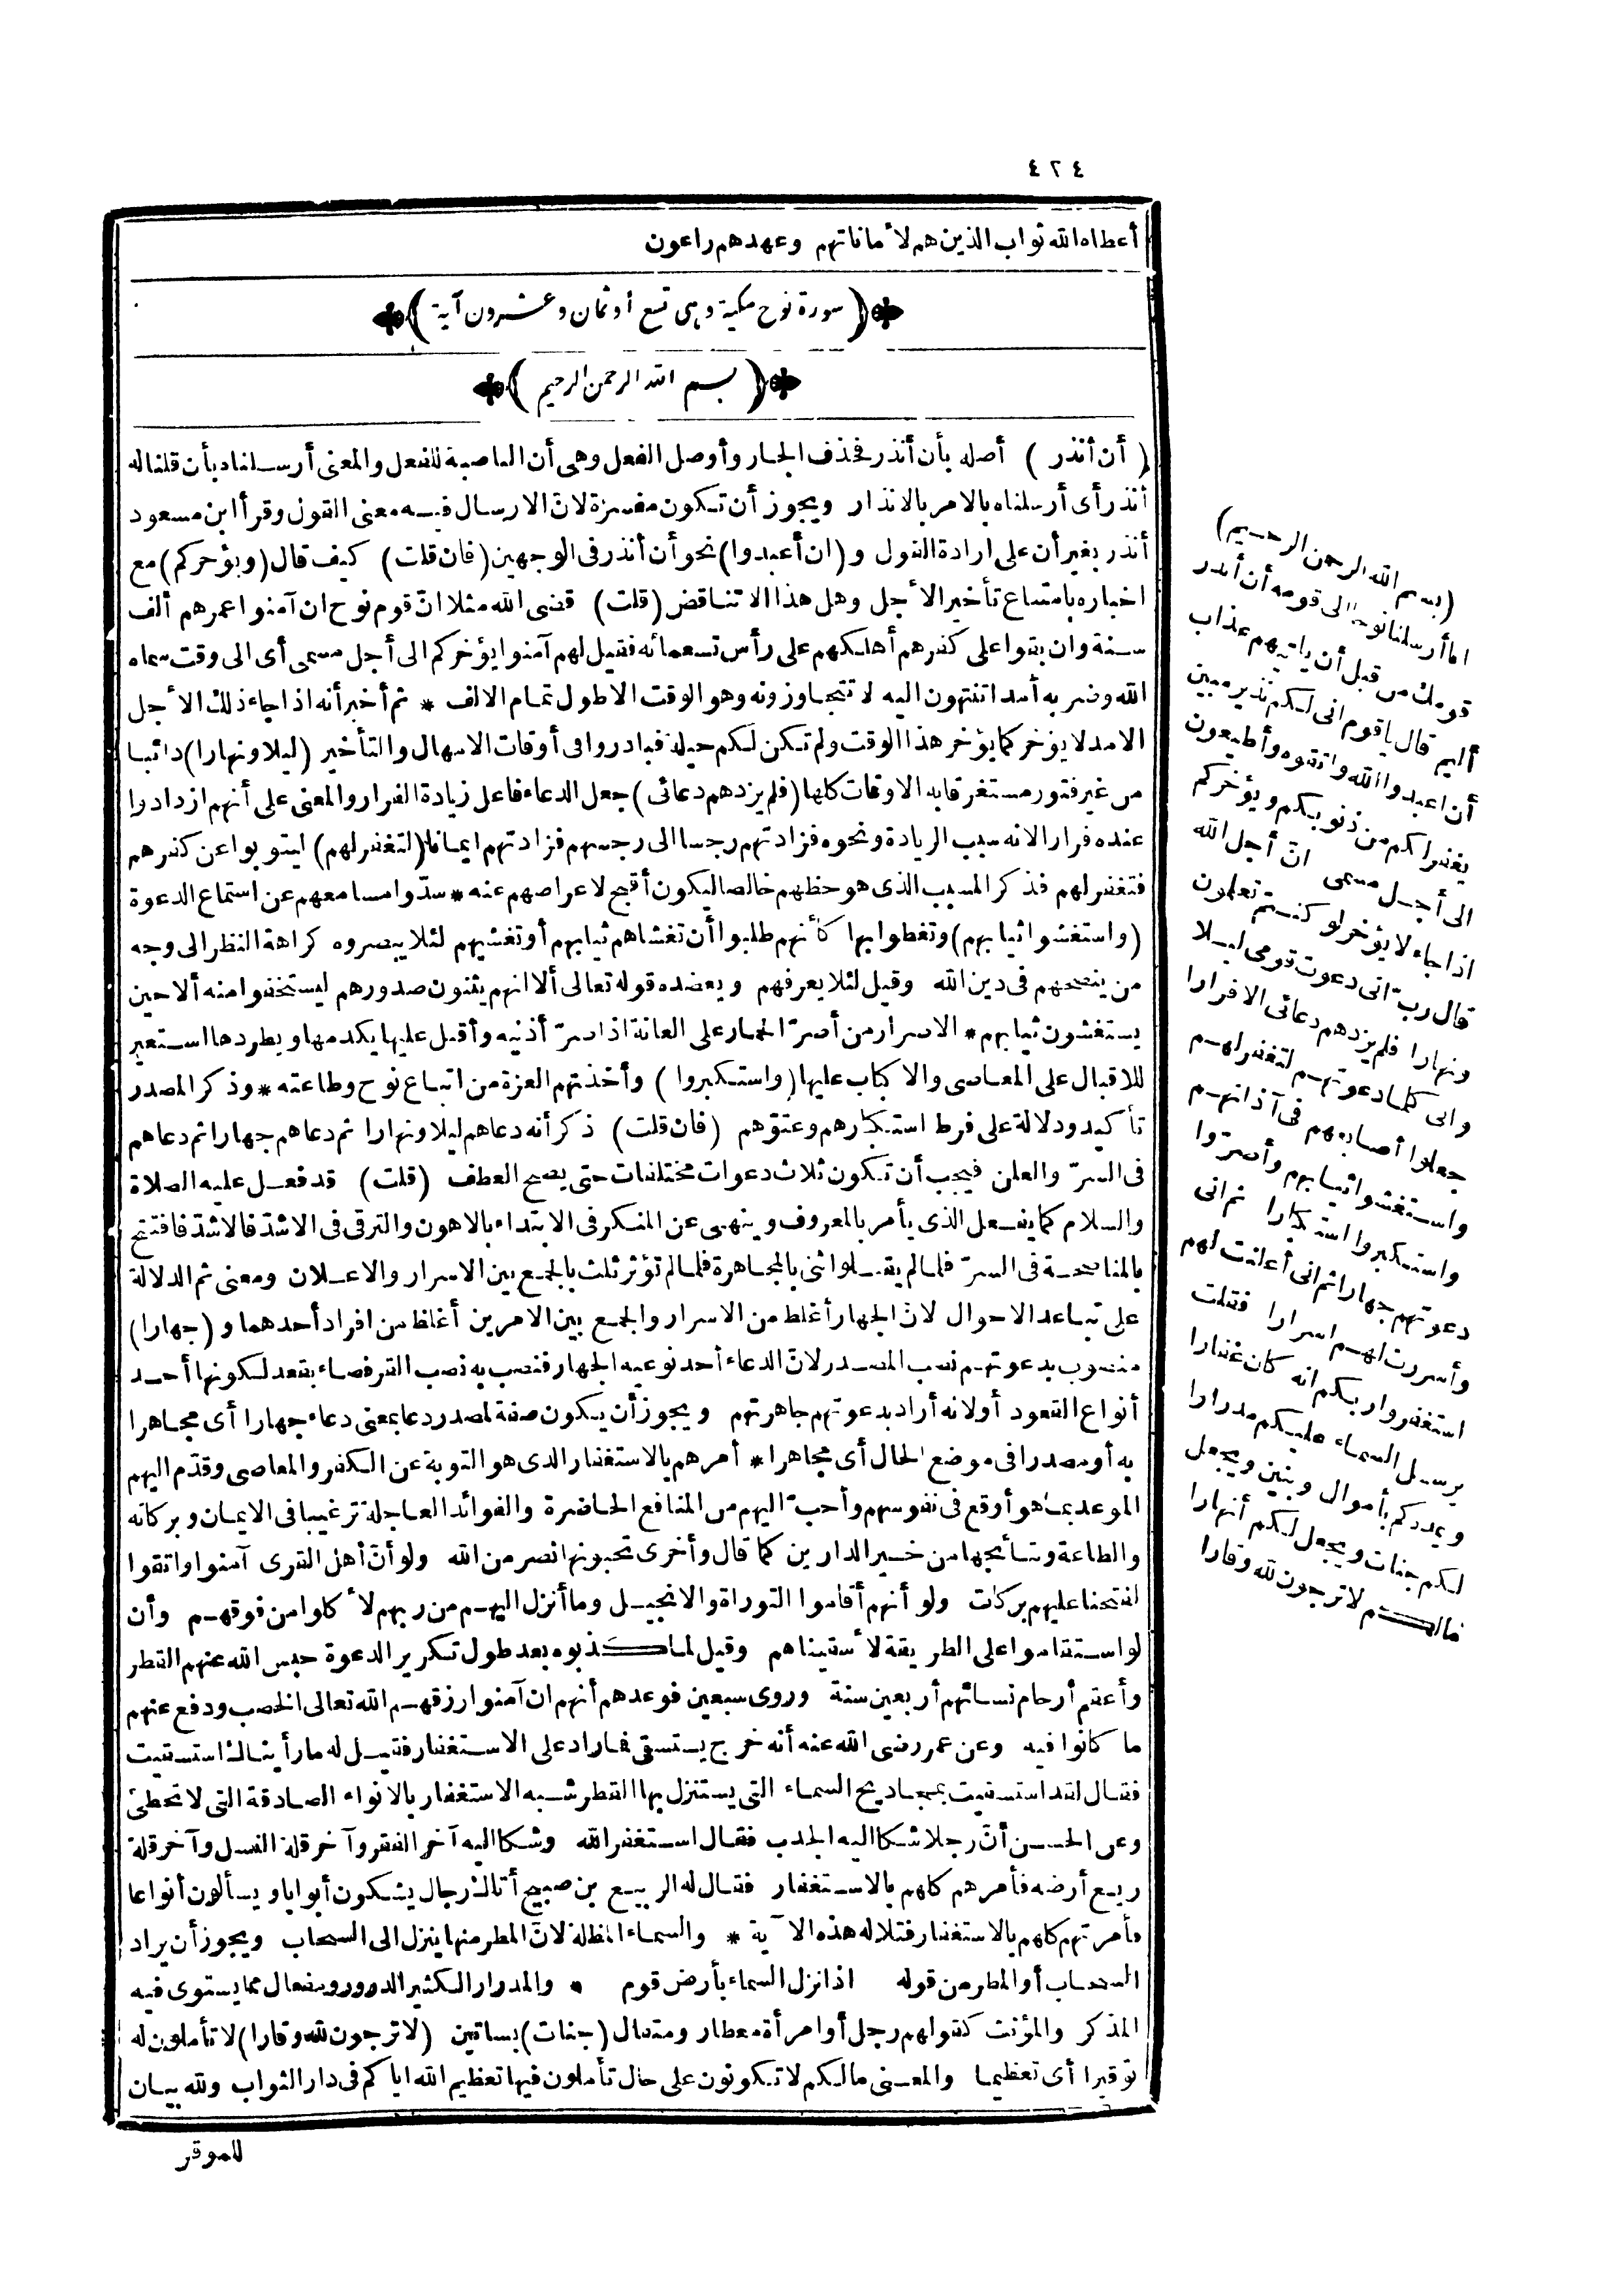 ٤٢٤
أعطاه الله ثواب الذين هم لأماناتهم وعهدهم راعون
(سورة نوح مكية وهى تسع أو ثمان وعشرون آية)
(بسم الله الرحمن الرحيم)
(أن أنذر) أصله بأن أنذر فحذف الجار وأوصل الفعل وهى أن الناصبة للفعل والمعنى أرسلناه بأن قلنا له
أنذر أى أرسلناه بالامر بالانذار ويجوز أن تكون مفسرة لان الارسال فيه معنى القول وقرأ ابن مسعود
أنذر بغير أن على ارادة القول و(ان أعبدوا) نحو أن أنذر فى الوجهين (فان قلت) كيف قال (ويؤخركم) مع
اخباره بامتناع تأخير الأجل وهل هذا الا تناقض (قلت) قضى الله مثلا انّ قوم نوح ان آمنوا عمرهم ألف
سنة وان بقوا على كفرهم أهلكهم على رأس تسعمائه فقيل لهم آمنوا يؤخركم الى أجل مسمى أى الى وقت سماه
الله وضربه أمدا تنتهون اليه لا تتجاوزونه وهو الوقت الاطول تمام الالف * ثم أخبر أنه اذا جاء ذلك الأجل
الامد لا يؤخر كما يؤخر هذا الوقت ولم تكن لكم حيلة فبادروا فى أوقات الامهال والتأخير (ليلا ونهارا) دائبا
من غير فتور مستغرقا به الاوقات كلها (فلم يزدهم دعائى) جعل الدعاء فاعل زيادة الفرار والمعنى على أنهم ازدادوا
عنده فرارا لانه سبب الزيادة ونحوه فزادتهم رجسا الى رجسهم فزادتهم ايمانا (لتغفر لهم) ليتوبوا عن كفرهم
فتغفر لهم فذكر المسبب الذى هو حظهم خالصا ليكون أقبح لاعراضهم عنه * سدّوا مسامعهم عن استماع الدعوة
(واستغشوا ثيابهم) وتغطوا بها كأنهم طلبوا أن تغشاهم ثيابهم أو تغشيهم لئلا يبصروه كراهة النظر الى وجه
من ينصحهم فى دين الله وقيل لئلا يعرفهم ويعضده قوله تعالى ألا انهم يثنون صدورهم ليستخفوا منه ألا حين
يستغشون ثيابهم * الاصرار من أصرّ الحمار على العانة اذا صرّ أذنيه وأقبل عليها يكدمها ويطردها استعير
للاقبال على المعاصى والاكباب عليها (واستكبروا) وأخذتهم العزة من اتباع نوح وطاعته * وذكر المصدر
تأكيد ودلالة على فرط استكبارهم وعتوّهم (فان قلت) ذكر أنه دعاهم ليلا ونهارا ثم دعاهم جهارا ثم دعاهم
فى السرّ والعلن فيجب أن تكون ثلاث دعوات مختلفات حتى يصح العطف (قلت) قد فعل عليه الصلاة
والسلام كما يفعل الذى يأمر بالمعروف وينهى عن المنكر فى الابتداء بالاهون والترقى فى الاشدّ فالاشدّ فافتتح
بالمناصحة فى السرّ فلما لم يقبلوا ثنى بالمجاهرة فلما لم تؤثر ثلث بالجمع بين الاسرار والاعلان ومعنى ثم الدلالة
على تباعد الاحوال لانّ الجهار أغلظ من الاسرار والجمع بين الامرين أغلظ من افراد أحدهما و(جهارا)
منصوب بدعوتهم نصب المصدر لانّ الدعاء أحد نوعيه الجهار فنصب به نصب القرفصاء بقعد لكونها أحد
أنواع القعود أو لانه أراد بدعوتهم جاهرتهم ويجوز أن يكون صفة لمصدر دعا بمعنى دعاء جهارا أى مجاهرا
به أو مصدرا فى موضع الحال أى مجاهرا * أمرهم بالاستغفار الذى هو التوبة عن الكفر والمعاصى وقدّم اليهم
الموعد بما هو أوقع فى نفوسهم وأحبّ اليهم من المنافع الحاضرة والفوائد العاجلة ترغيبا فى الايمان وبركاته
والطاعة ونتائجها من خير الدارين كما قال وأخرى تحبونها نصر من الله ولو أنّ أهل القرى آمنوا واتقوا
لفتحنا عليهم بركات ولو أنهم أقاموا التوراة والانجيل وما أنزل اليهم من ربهم لأكلوا من فوقهم وأن
لو استقاموا على الطريقة لأسقيناهم وقيل لما كذبوه بعد طول تكرير الدعوة حبس الله عنهم القطر
وأعقم أرحام نسائهم أربعين سنة وروى سبعين فوعدهم أنهم ان آمنوا رزقهم الله تعالى الخصب ودفع عنهم
ما كانوا فيه وعن عمر رضى الله عنه أنه خرج يستسقى فما زاد على الاستغفار فقيل له ما رأيناك استسقيت
فقال لقد استسقيت بمجاديح السماء التى يستنزل بها القطر شبه الاستغفار بالانواء الصادقة التى لا تخطئ
وعن الحسن أنّ رجلا شكا اليه الجدب فقال استغفر الله وشكا اليه آخر الفقر وآخر قلة النسل وآخر قلة
ريع أرضه فأمرهم كلهم بالاستغفار فقال له الربيع بن صبيح أتاك رجال يشكون أبوابا ويسألون أنواعا
فأمرتهم كلهم بالاستغفار فتلا له هذه الآية * والسماء المظلة لانّ المطر منها ينزل الى السحاب ويجوز أن يراد
السحاب أو المطر من قوله اذا نزل السماء بأرض قوم * والمدرار الكثير الدرور ومفعال مما يستوى فيه
المذكر والمؤنث كقولهم رجل أو امرأة معطار ومتفال (جنات) بساتين (لا ترجون لله وقارا) لا تأملون له
توقيرا أى تعظيما والمعنى ما لكم لا تكونون على حال تأملون فيها تعظيم الله اياكم فى دار الثواب ولله بيان
للموقر
(بسم الله الرحمن الرحيم)
انا أرسلنا نوحا الى قومه أن أنذر
قومك من قبل أن يأتيهم عذاب
أليم قال ياقوم انى لكم نذير مبين
أن اعبدوا الله واتقوه وأطيعون
يغفر لكم من ذنوبكم ويؤخركم
الى أجل مسمى انّ أجل الله
اذا جاء لا يؤخر لو كنتم تعلمون
قال ربّ انى دعوت قومى ليلا
ونهارا فلم يزدهم دعائى الا فرارا
وانى كلما دعوتهم لتغفر لهم
جعلوا أصابعهم فى آذانهم
واستغشوا ثيابهم وأصرّوا
واستكبروا استكبارا ثم انى
دعوتهم جهارا ثم انى أعلنت لهم
وأسررت لهم اسرارا فقلت
استغفروا ربكم انه كان غفارا
يرسل السماء عليكم مدرارا
ويمددكم بأموال وبنين ويجعل
لكم جنات ويجعل لكم أنهارا
مالكم لا ترجون لله وقارا